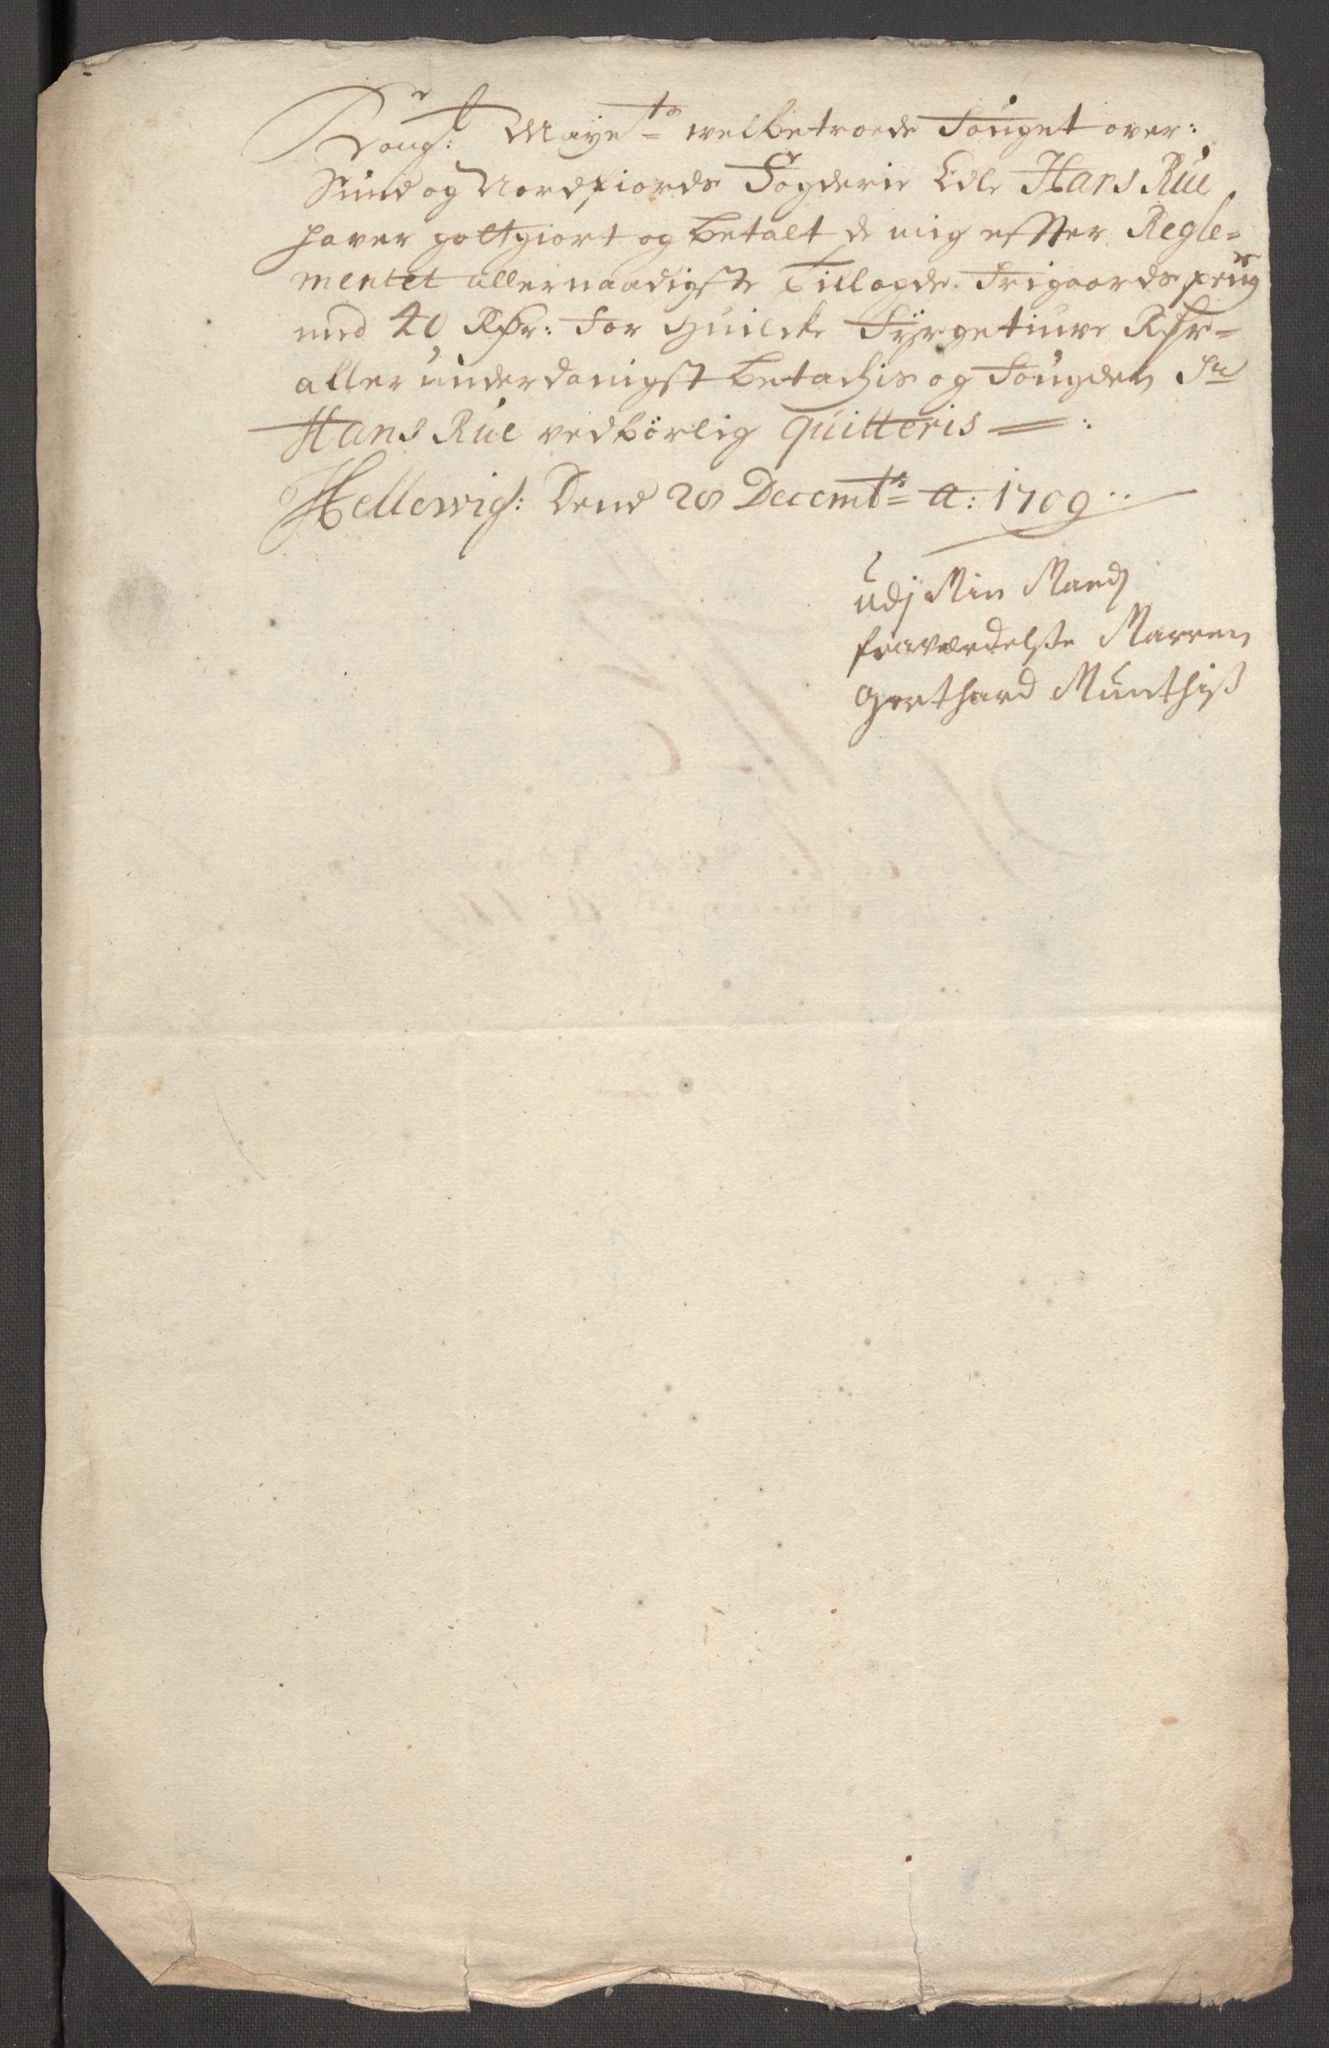 Kongl: Maye^ts welbetroede Fouget over:
Sund og Nordfiords Fogderie Edle Hans Rue
haver godtgiort og betalt de mig effter Regle=
mentet allernaadigste Tillagde Frigaards peng
med 40 Rdr: for huilcke Fÿrgetiuve Rdr=
allerunderdanigst betachis og Fougden Sr
Hans Rue vedbørlig quitteris =:
Hellewigh: Dend 28 Decemb^r= A: 1709:
udj Min Mandz
fraværdelsse Marren
Gerthard Munthiß